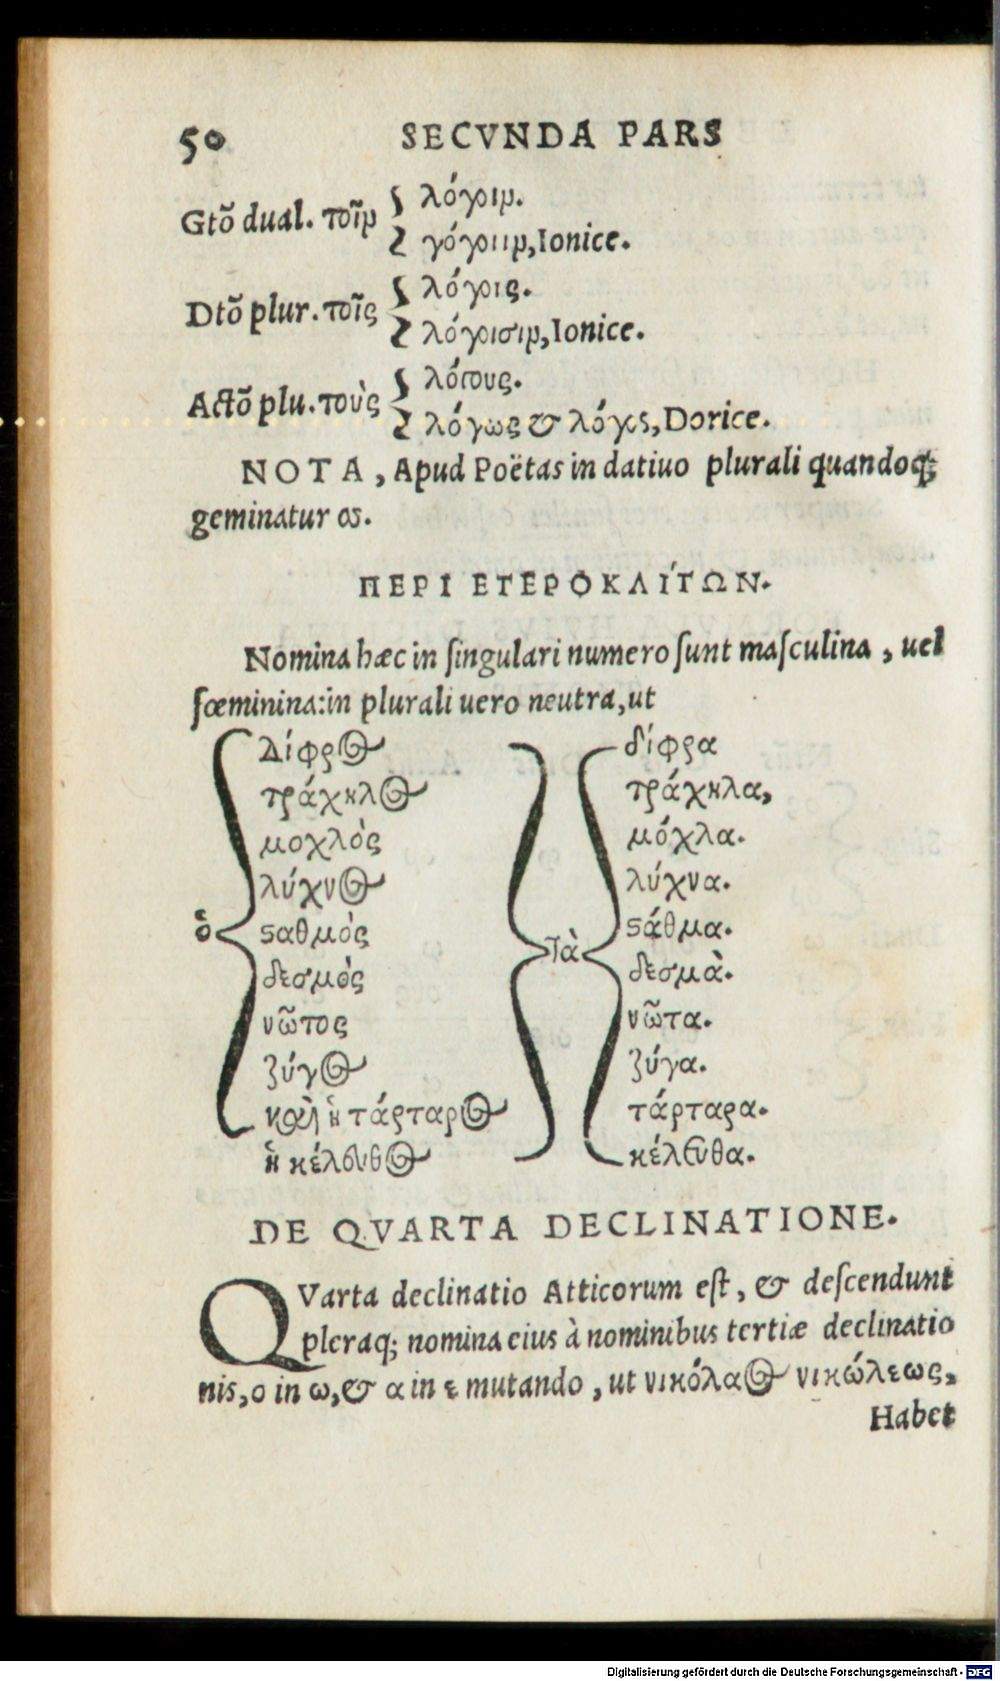 50 SECVNDA PARS
Gtõ dual. τοῖν { λόγοιν.
γόγοιιν, Ionice.
Dtõ plur. τοῖς { λόγοις.
λόγοισιν, Ionice.
Actõ plu. τοὺς { λόγους.
λόγως & λόγος, Dorice.
NOTA, Apud Poëtas in datiuo plurali quandoq;
geminatur os.
ΠΕΡΙ ΕΤΕΡΟΚΛΊΤΩΝ.
Nomina hæc in singulari numero sunt masculina, uel
fœminina: in plurali uero neutra, ut
Δίφρος δίφρα
τράχηλος τράχηλα,
μοχλὸς μόχλα.
λύχνος λύχνα.
ὁ ϛαθμὸς Τὰ ϛάθμα.
δεσμὸς δεσμὰ.
νῶτος νῶτα.
ζύγος ζύγα.
καὶ ἡ τάρταρος τάρταρα.
ἡ κέλευθος κέλευθα.
DE QVARTA DECLINATIONE.
QVarta declinatio Atticorum est, & descendunt
pleraq; nomina eius à nominibus tertiæ declinatio
nis, o in ω, & α in ε mutando, ut νικόλαος νικώλεως,
Habet
Digitalisierung gefördert durch die Deutsche Forschungsgemeinschaft - DFG